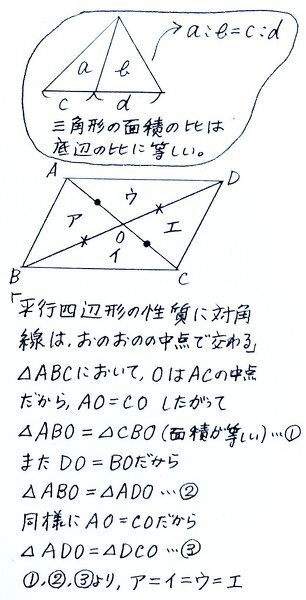 a b → a:b=c:d
c d
三角形の面積の比は
底辺の比に等しい。
A D
ウ
ア エ
O
イ
B C
「平行四辺形の性質に対角
線は、おのおのの中点で交わる」
△ABCにおいて、OはACの中点
だから、AO=CO したがって
△ABO=△CBO(面積が等しい)…①
また DO=BOだから
△ABO=△ADO…②
同様にAO=COだから
△ADO=△DCO…③
①,②,③より,ア=イ=ウ=エ